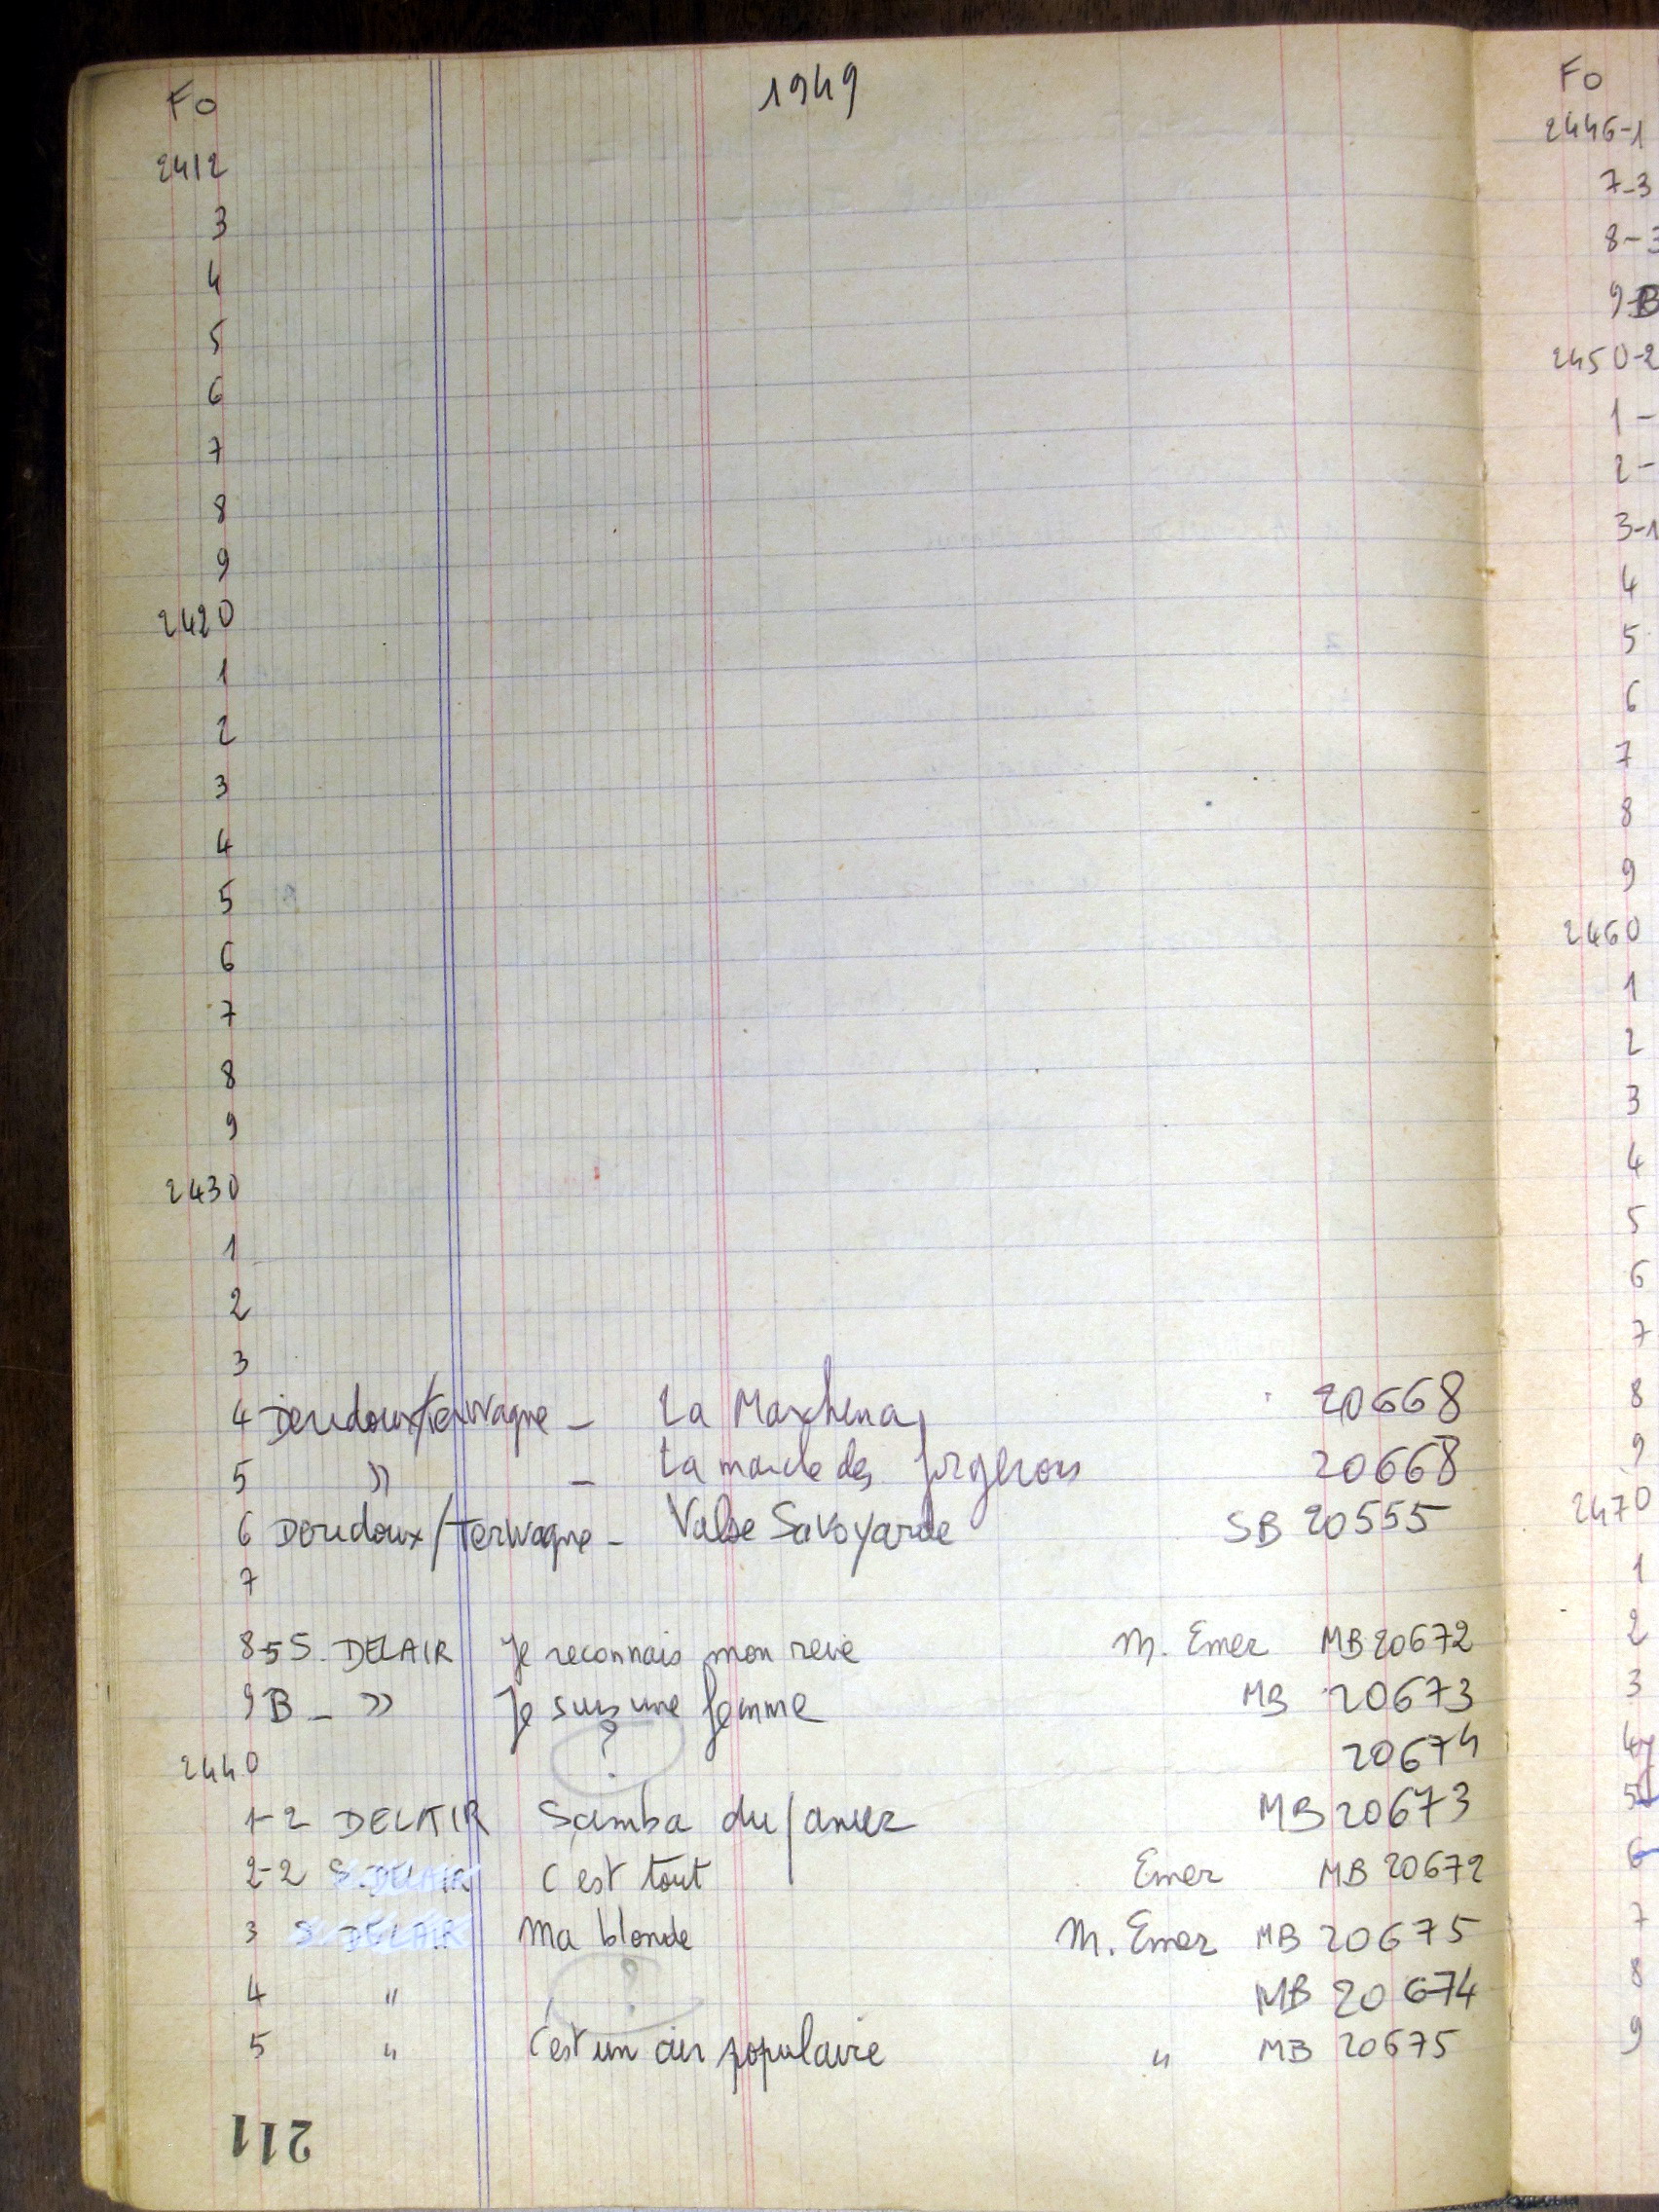 1949
Fo
2412
3
4
5
6
7
8
9
2420
1
2
3
4
5
6
7
8
9
2430
1
2
3
4 Deridoux/Terwagne - La Marchena 20668
5 » - La marche des forgerons 20668
6 Deridoux/Terwagne - Valse Savoyarde SB 20555
7
8-5 S. DELAIR Je reconnais mon reve M. Emer MB 20672
9 B - » Je suis une femme MB 20673
2440 ? 20674
1-2 DELAIR Samba du Janvier MB 20673
2-2 S. DELAIR C'est tout Emer MB 20672
3 S. DELAIR Ma blonde M. Emer MB 20675
4 " ? MB 20674
5 " C'est un air populaire " MB 20675
211
Fo
2446-1
7-3
8-3
9-B
2450-2
1-
2-
3-1
4
5
6
7
8
9
2460
1
2
3
4
5
6
7
8
9
2470
1
2
3
4
5
6
7
8
9